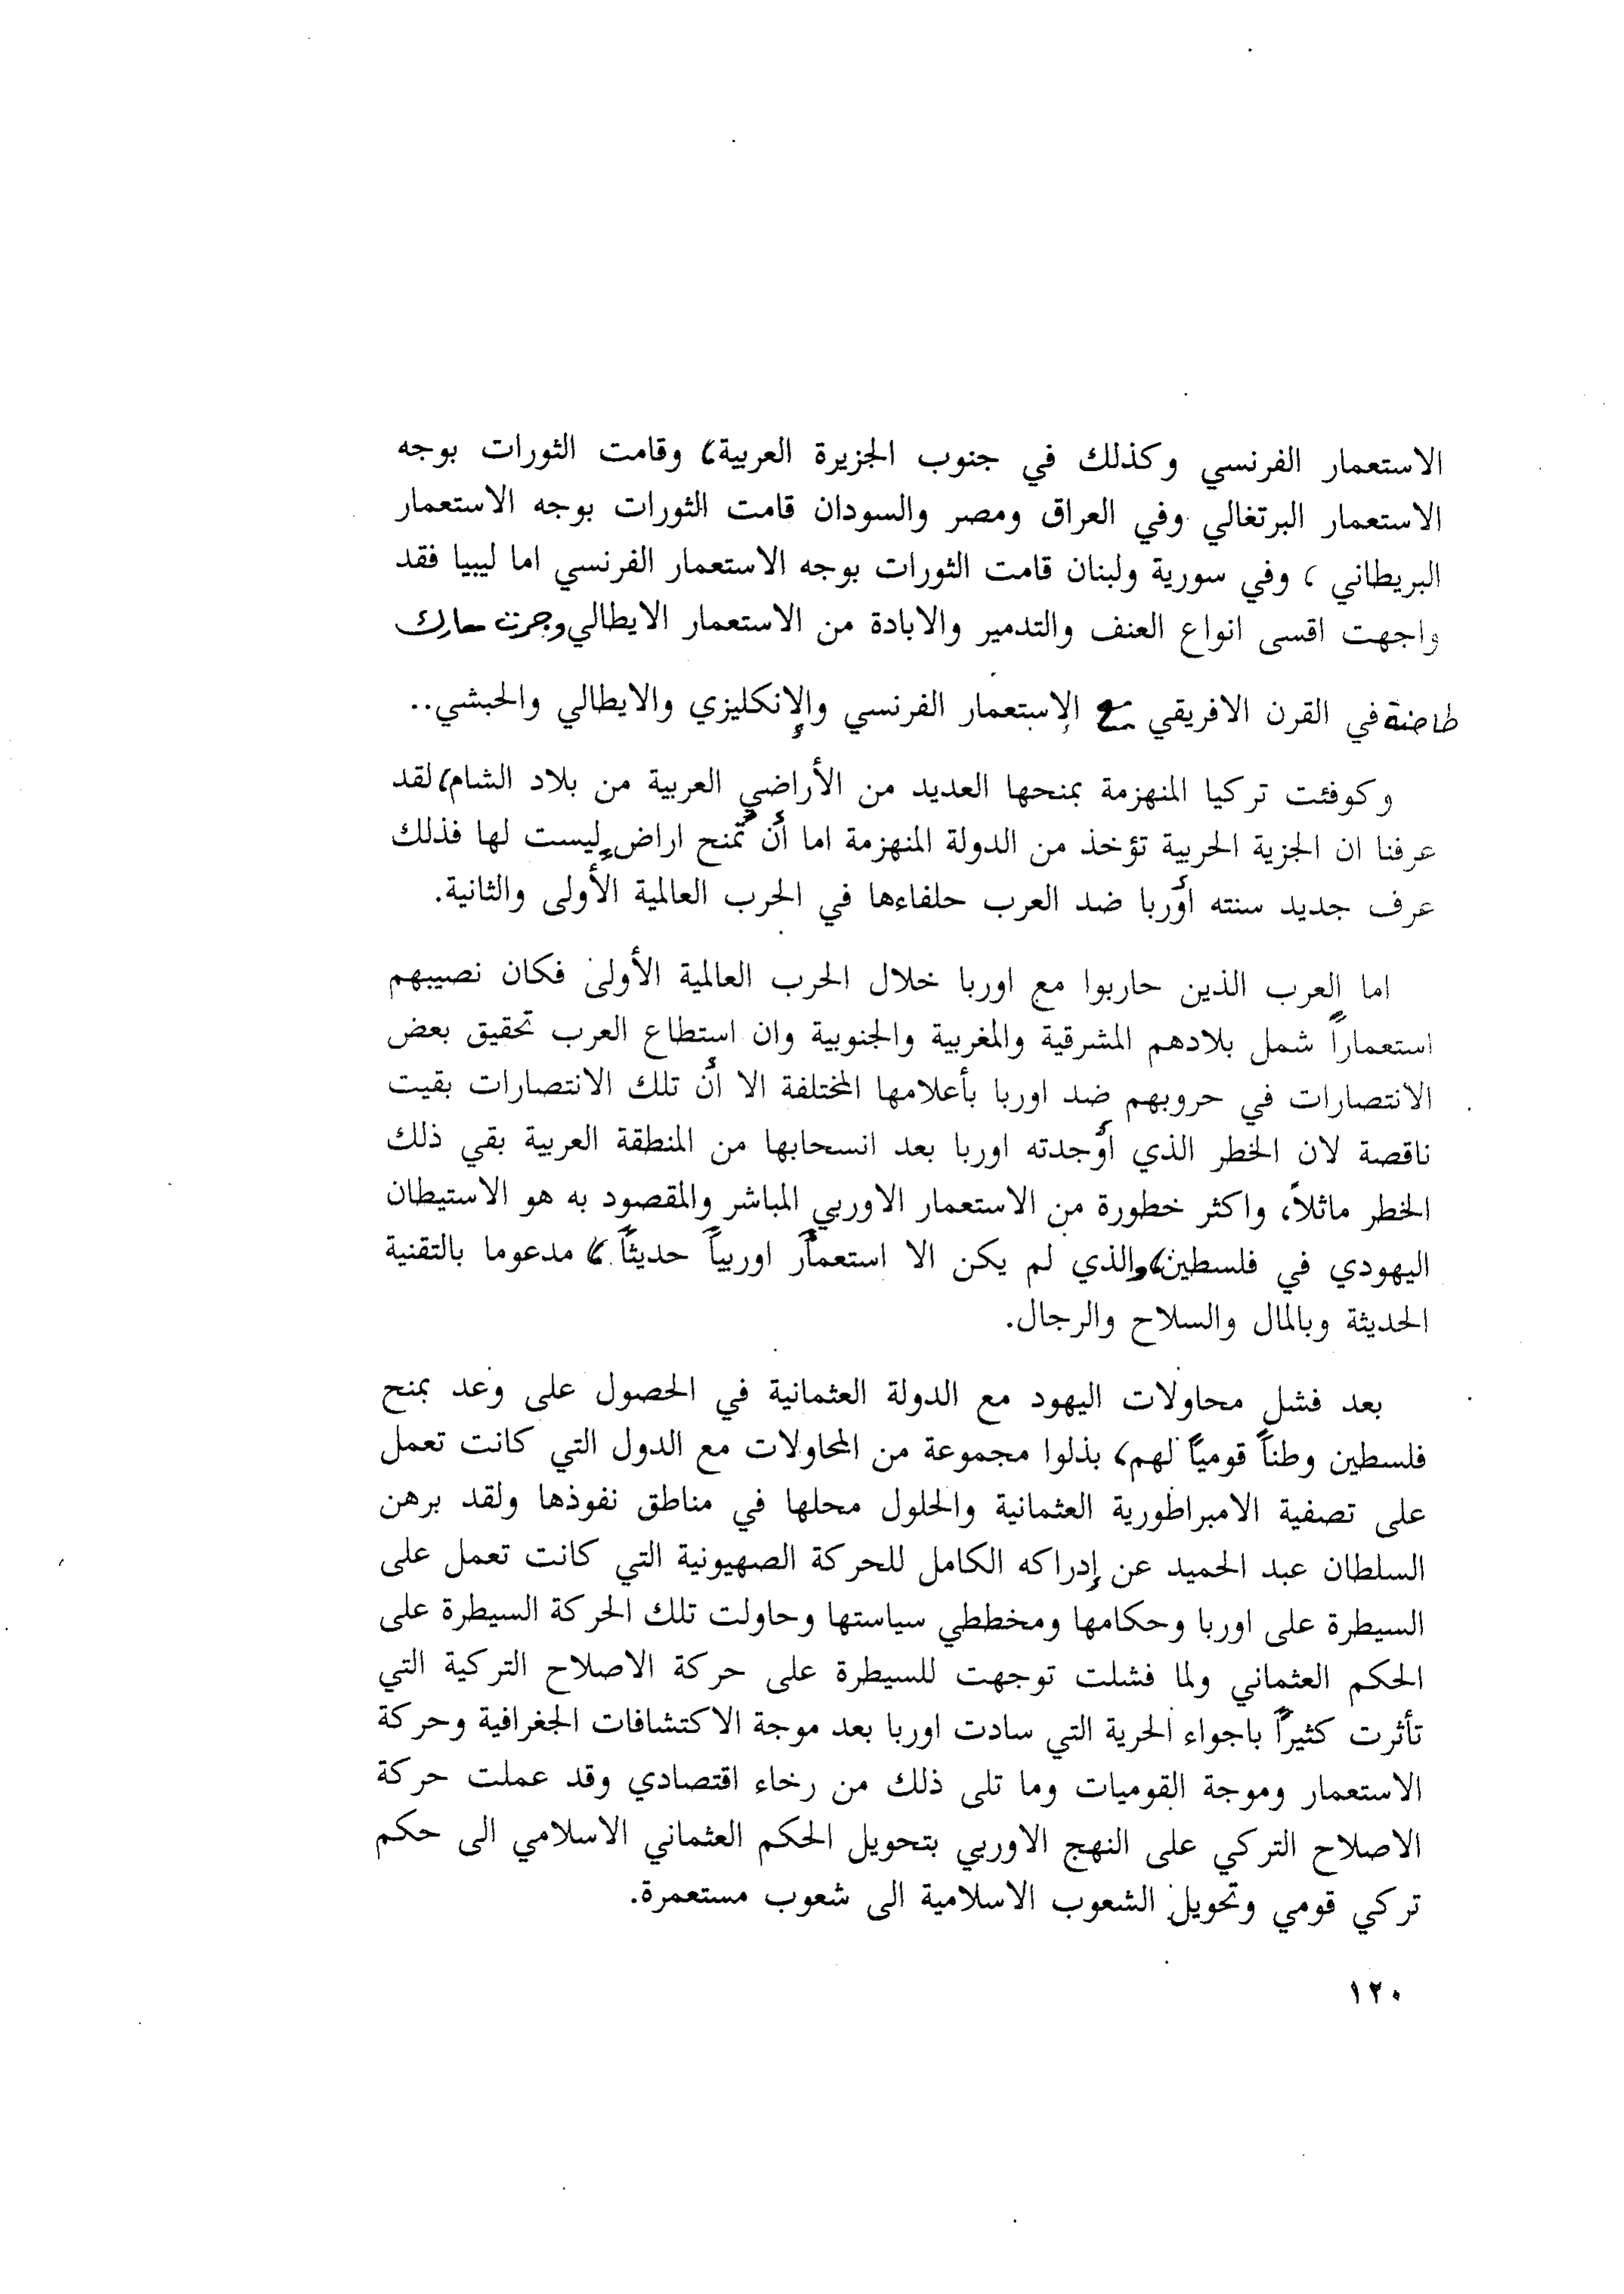 الاستعمار الفرنسي وكذلك في جنوب الجزيرة العربية، وقامت الثورات بوجه
الاستعمار البرتغالي وفي العراق ومصر والسودان قامت الثورات بوجه الاستعمار
البريطاني ، وفي سورية ولبنان قامت الثورات بوجه الاستعمار الفرنسي اما ليبيا فقد
واجهت اقسى انواع العنف والتدمير والابادة من الاستعمار الايطالي وجرت معارك
طاحنة في القرن الافريقي مع الإستعمار الفرنسي والإنكليزي والايطالي والحبشي..
وكوفئت تركيا المنهزمة بمنحها العديد من الأراضي العربية من بلاد الشام، لقد
عرفنا ان الجزية الحربية تؤخذ من الدولة المنهزمة اما أن تُمنح اراضٍ ليست لها فذلك
عرف جديد سنته أوربا ضد العرب حلفاءها في الحرب العالمية الأولى والثانية.
اما العرب الذين حاربوا مع اوربا خلال الحرب العالمية الأولى فكان نصيبهم
استعماراً شمل بلادهم المشرقية والمغربية والجنوبية وان استطاع العرب تحقيق بعض
الانتصارات في حروبهم ضد اوربا بأعلامها المختلفة الا أن تلك الانتصارات بقيت
ناقصة لان الخطر الذي أوجدته اوربا بعد انسحابها من المنطقة العربية بقي ذلك
الخطر ماثلاً، واكثر خطورة من الاستعمار الاوربي المباشر والمقصود به هو الاستيطان
اليهودي في فلسطين، والذي لم يكن الا استعماراً اوربياً حديثاً ، مدعوما بالتقنية
الحديثة وبالمال والسلاح والرجال.
بعد فشل محاولات اليهود مع الدولة العثمانية في الحصول على وعد بمنح
فلسطين وطناً قومياً لهم، بذلوا مجموعة من المحاولات مع الدول التي كانت تعمل
على تصفية الامبراطورية العثمانية والحلول محلها في مناطق نفوذها ولقد برهن
السلطان عبد الحميد عن إدراكه الكامل للحركة الصهيونية التي كانت تعمل على
السيطرة على اوربا وحكامها ومخططي سياستها وحاولت تلك الحركة السيطرة على
الحكم العثماني ولما فشلت توجهت للسيطرة على حركة الاصلاح التركية التي
تأثرت كثيراً باجواء الحرية التي سادت اوربا بعد موجة الاكتشافات الجغرافية وحركة
الاستعمار وموجة القوميات وما تلى ذلك من رخاء اقتصادي وقد عملت حركة
الاصلاح التركي على النهج الاوربي بتحويل الحكم العثماني الاسلامي الى حكم
تركي قومي وتحويل الشعوب الاسلامية الى شعوب مستعمرة.
١٢٠